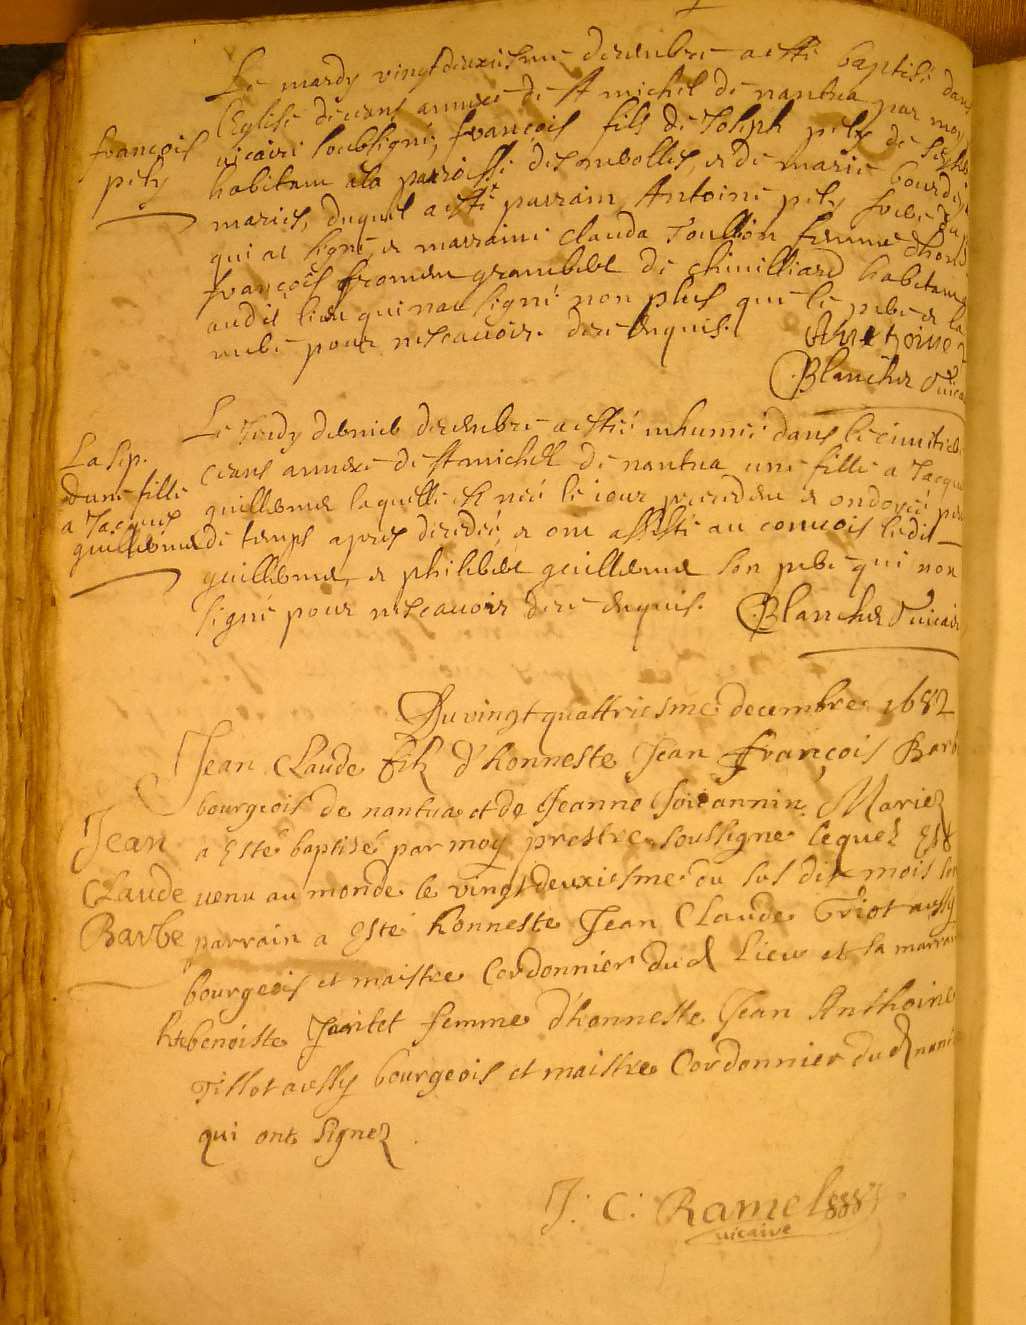 Le mardy vingtdeuxiesme decembre a esté baptisé dans
l'Eglise ceans annexe de st michel de nantua par moy
françois
vicaire soubsigné, françois fils de Joseph pely de
pely
habitant a la paroisse des et de marie
mariés, duquel a esté parrain Antoine pely
qui at signé, et marraine clauda Joullion femme d'hon
françois froment de chivilliard habitant
audit lieu qui n'at signé non plus que le pere et la
mere pour ne scavoir de ce enquis. Anthoine
Blanchet vicai
Le Jeudy dernier decembre a esté inhumé dans le cimitiere
La sep.
ceans annexe de st michel de nantua une fille a Jacque
d'une fille
guillerme laquelle est née le jour precedent et ondoyée peu
a Jacques
guillerme
de temps apres decedée, et ont assisté au convois ledit
guillerme, et philibert guillerme son pere qui n'on
signé pour ne scavoir de ce enquis. Blanchet vicair
Du vingt quattriesme decembre 1682
Jean Claude fils d'honneste Jean françois Barb
bourgeois de nantua et de Jeanne Mariez
Jean
a esté baptisé par moy prestre soussigne lequel est
Claude
venu au monde le vingt deuxiesme du sus dit mois son
Barbe
parrain a esté honneste Jean Claude Triot aussy
bourgeois et maistre Cordonnier dud lieu et sa marrai
hte benoiste femme d'honneste Jean Anthoine
Tillot aussy bourgeois et maistre Cordonnier dud
qui ont signez.
J: C: Ramel
vicaire